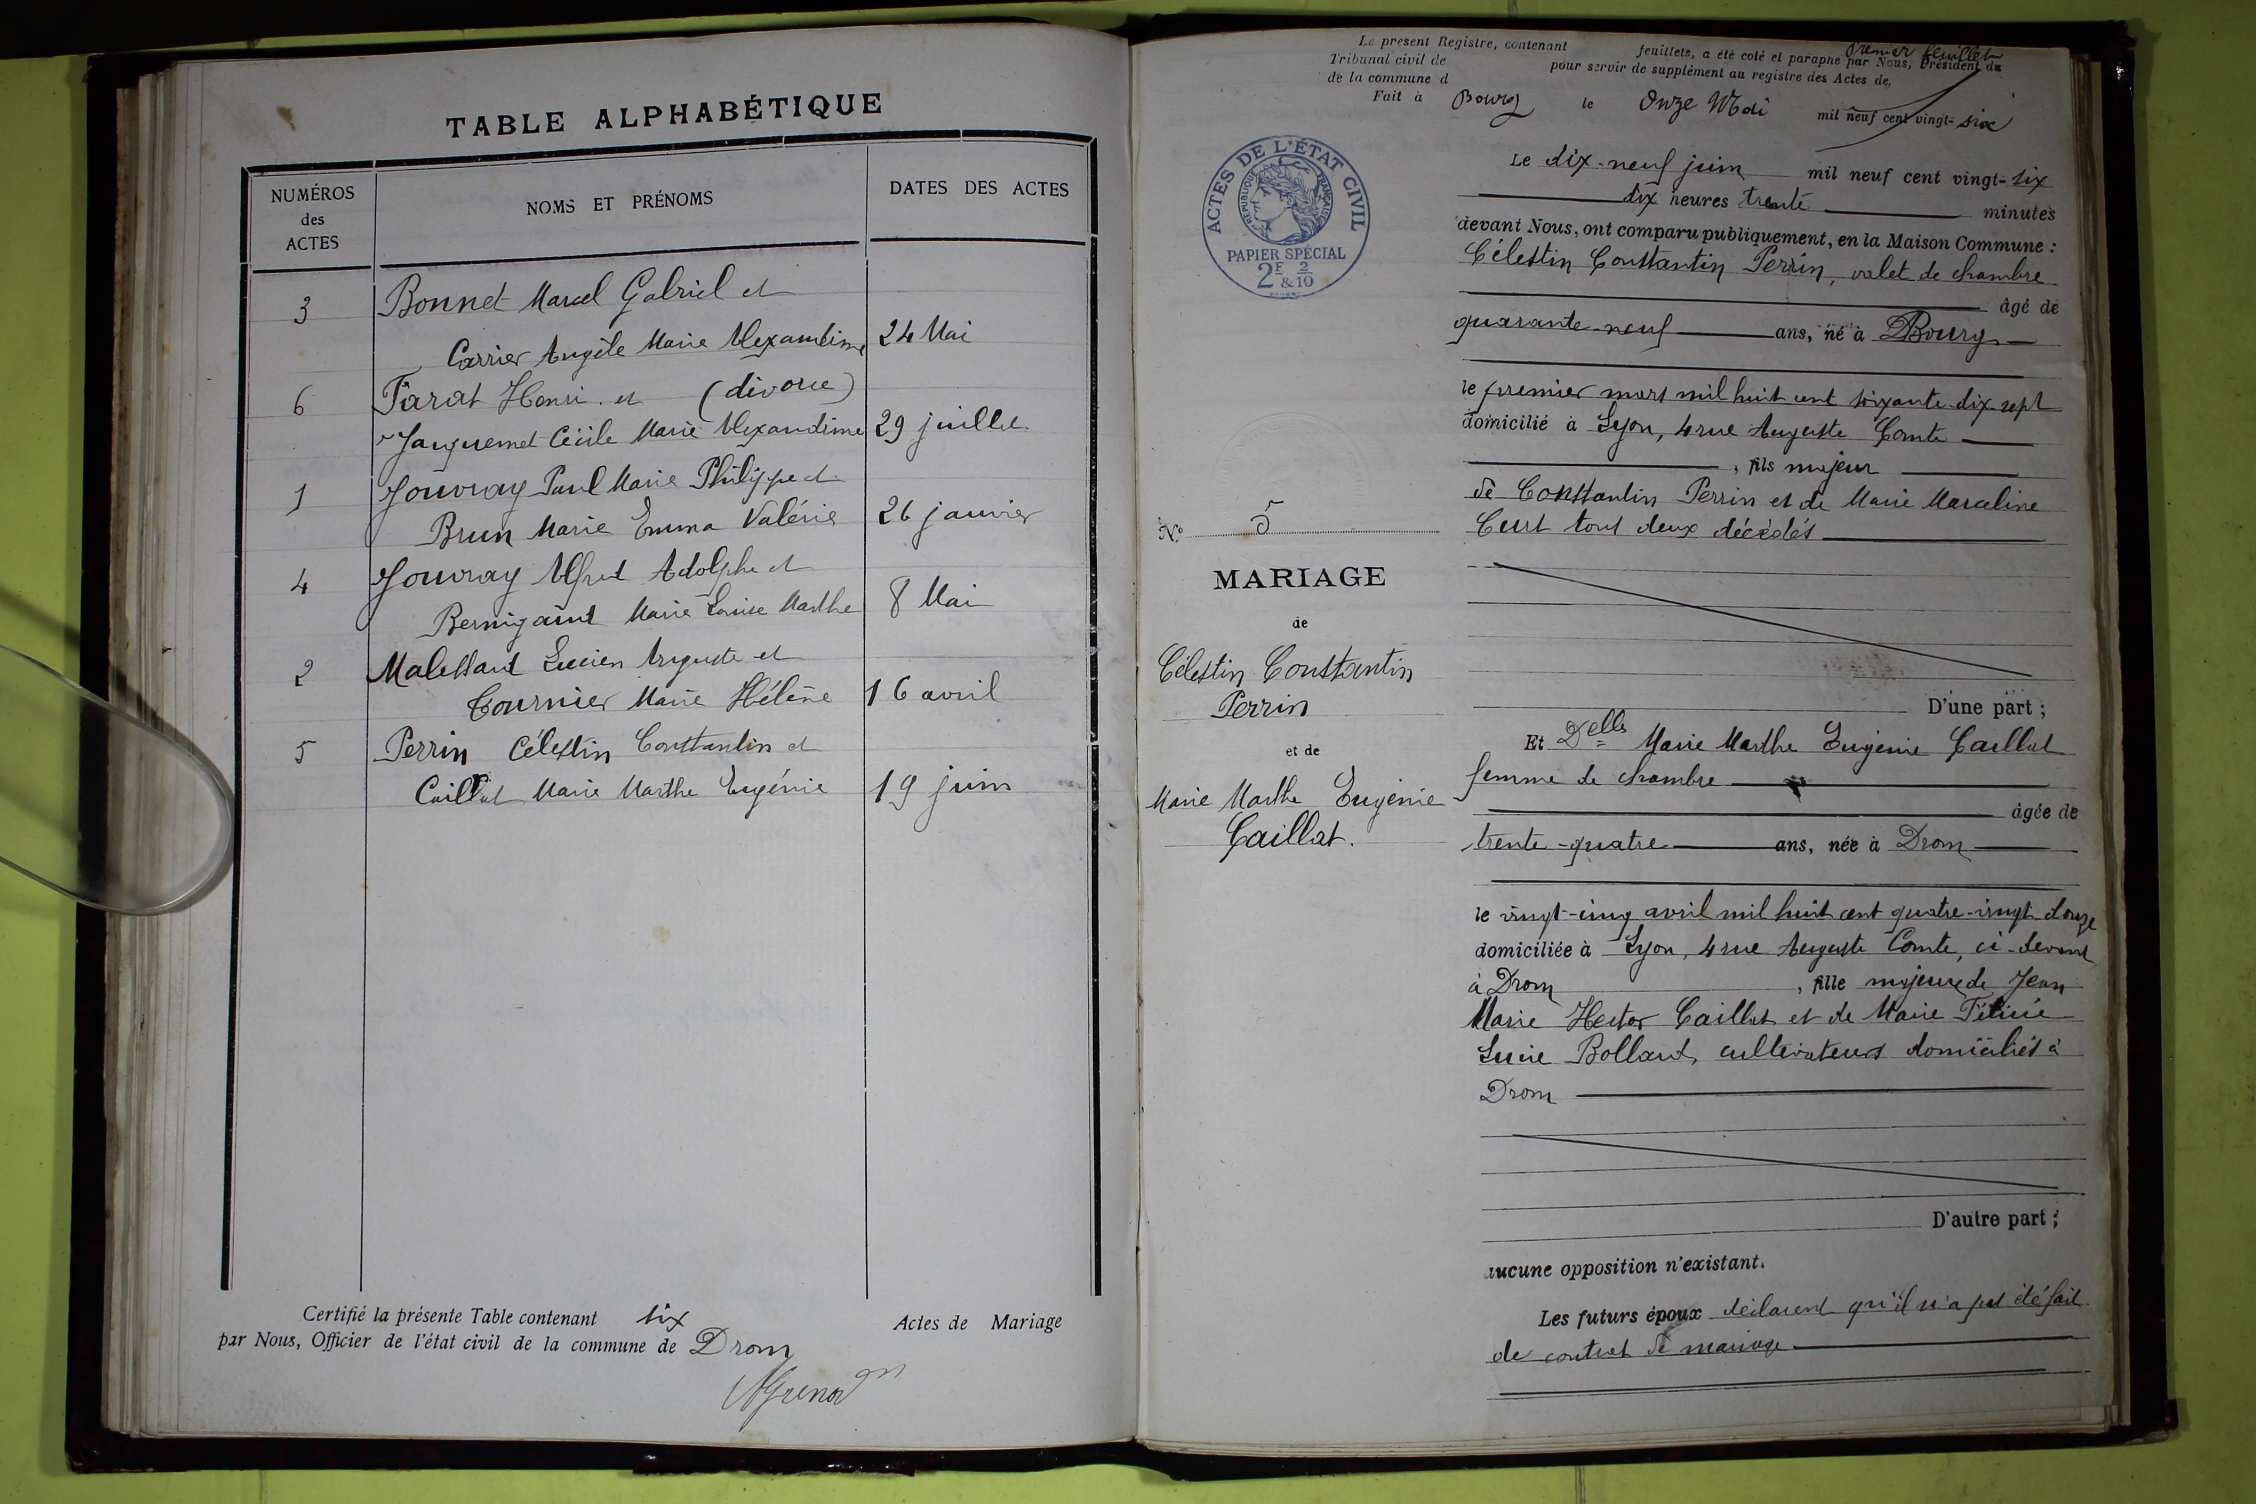 TABLE ALPHABÉTIQUE
NUMÉROS
des
ACTES
NOMS ET PRÉNOMS
DATES DES ACTES
3 Bonnet Marcel Gabriel et
Carrier Angèle Marie Alexandrine 24 Mai
6 Farat Henri et (divorce)
Janguemet Cécile Marie Alexandrine 29 juillet
1 Jouvray Paul Marie Philippe et
Brun Marie Emma Valérie 26 janvier
4 Jouvray Alfred Adolphe et
Bernigaud Marie Louise Marthe 8 Mai
2 Malessard Lucien Auguste et
Tournier Marie Hélène 16 avril
5 Perrin Célestin Constantin et
Caillat Marie Marthe Eugénie 19 juin
Certifié la présente Table contenant six Actes de Mariage
par Nous, Officier de l'état civil de la commune de Drom
Le present Registre, contenant feuillets, a été coté et paraphé par Nous, Président du
premier feuillet
Tribunal civil de pour servir de supplément au registre des Actes de
de la commune d
Fait à Bourg le Onze Mai mil neuf cent vingt-six
ACTES DE L'ÉTAT CIVIL
RÉPUBLIQUE FRANÇAISE
PAPIER SPÉCIAL
2F & 2/10
Le dix-neuf juin mil neuf cent vingt-six
dix heures trente minutes
devant Nous, ont comparu publiquement, en la Maison Commune :
Célestin Constantin Perrin, valet de chambre
âgé de
quarante-neuf ans, né à Bourg
le premier mars mil huit cent soixante-dix-sept
domicilié à Lyon, 4 rue Auguste Comte
, fils majeur
de Constantin Perrin et de Marie Marceline
Curt tout deux décédés
N° 5
MARIAGE
de
Célestin Constantin
Perrin
et de
Marie Marthe Eugénie
Caillat.
D'une part ;
Et Delle Marie Marthe Eugénie Caillat
femme de chambre
âgée de
trente-quatre ans, née à Drom
le vingt-cinq avril mil huit cent quatre-vingt-douze
domiciliée à Lyon, 4 rue Auguste Comte, ci-devant
à Drom , fille majeure de Jean
Marie Hector Caillat et de Marie Félicie
Lucie Bollard, cultivateurs domiciliés à
Drom
D'autre part ;
aucune opposition n'existant.
Les futurs époux déclarent qu'il n'a pas été fait
de contrat de mariage.